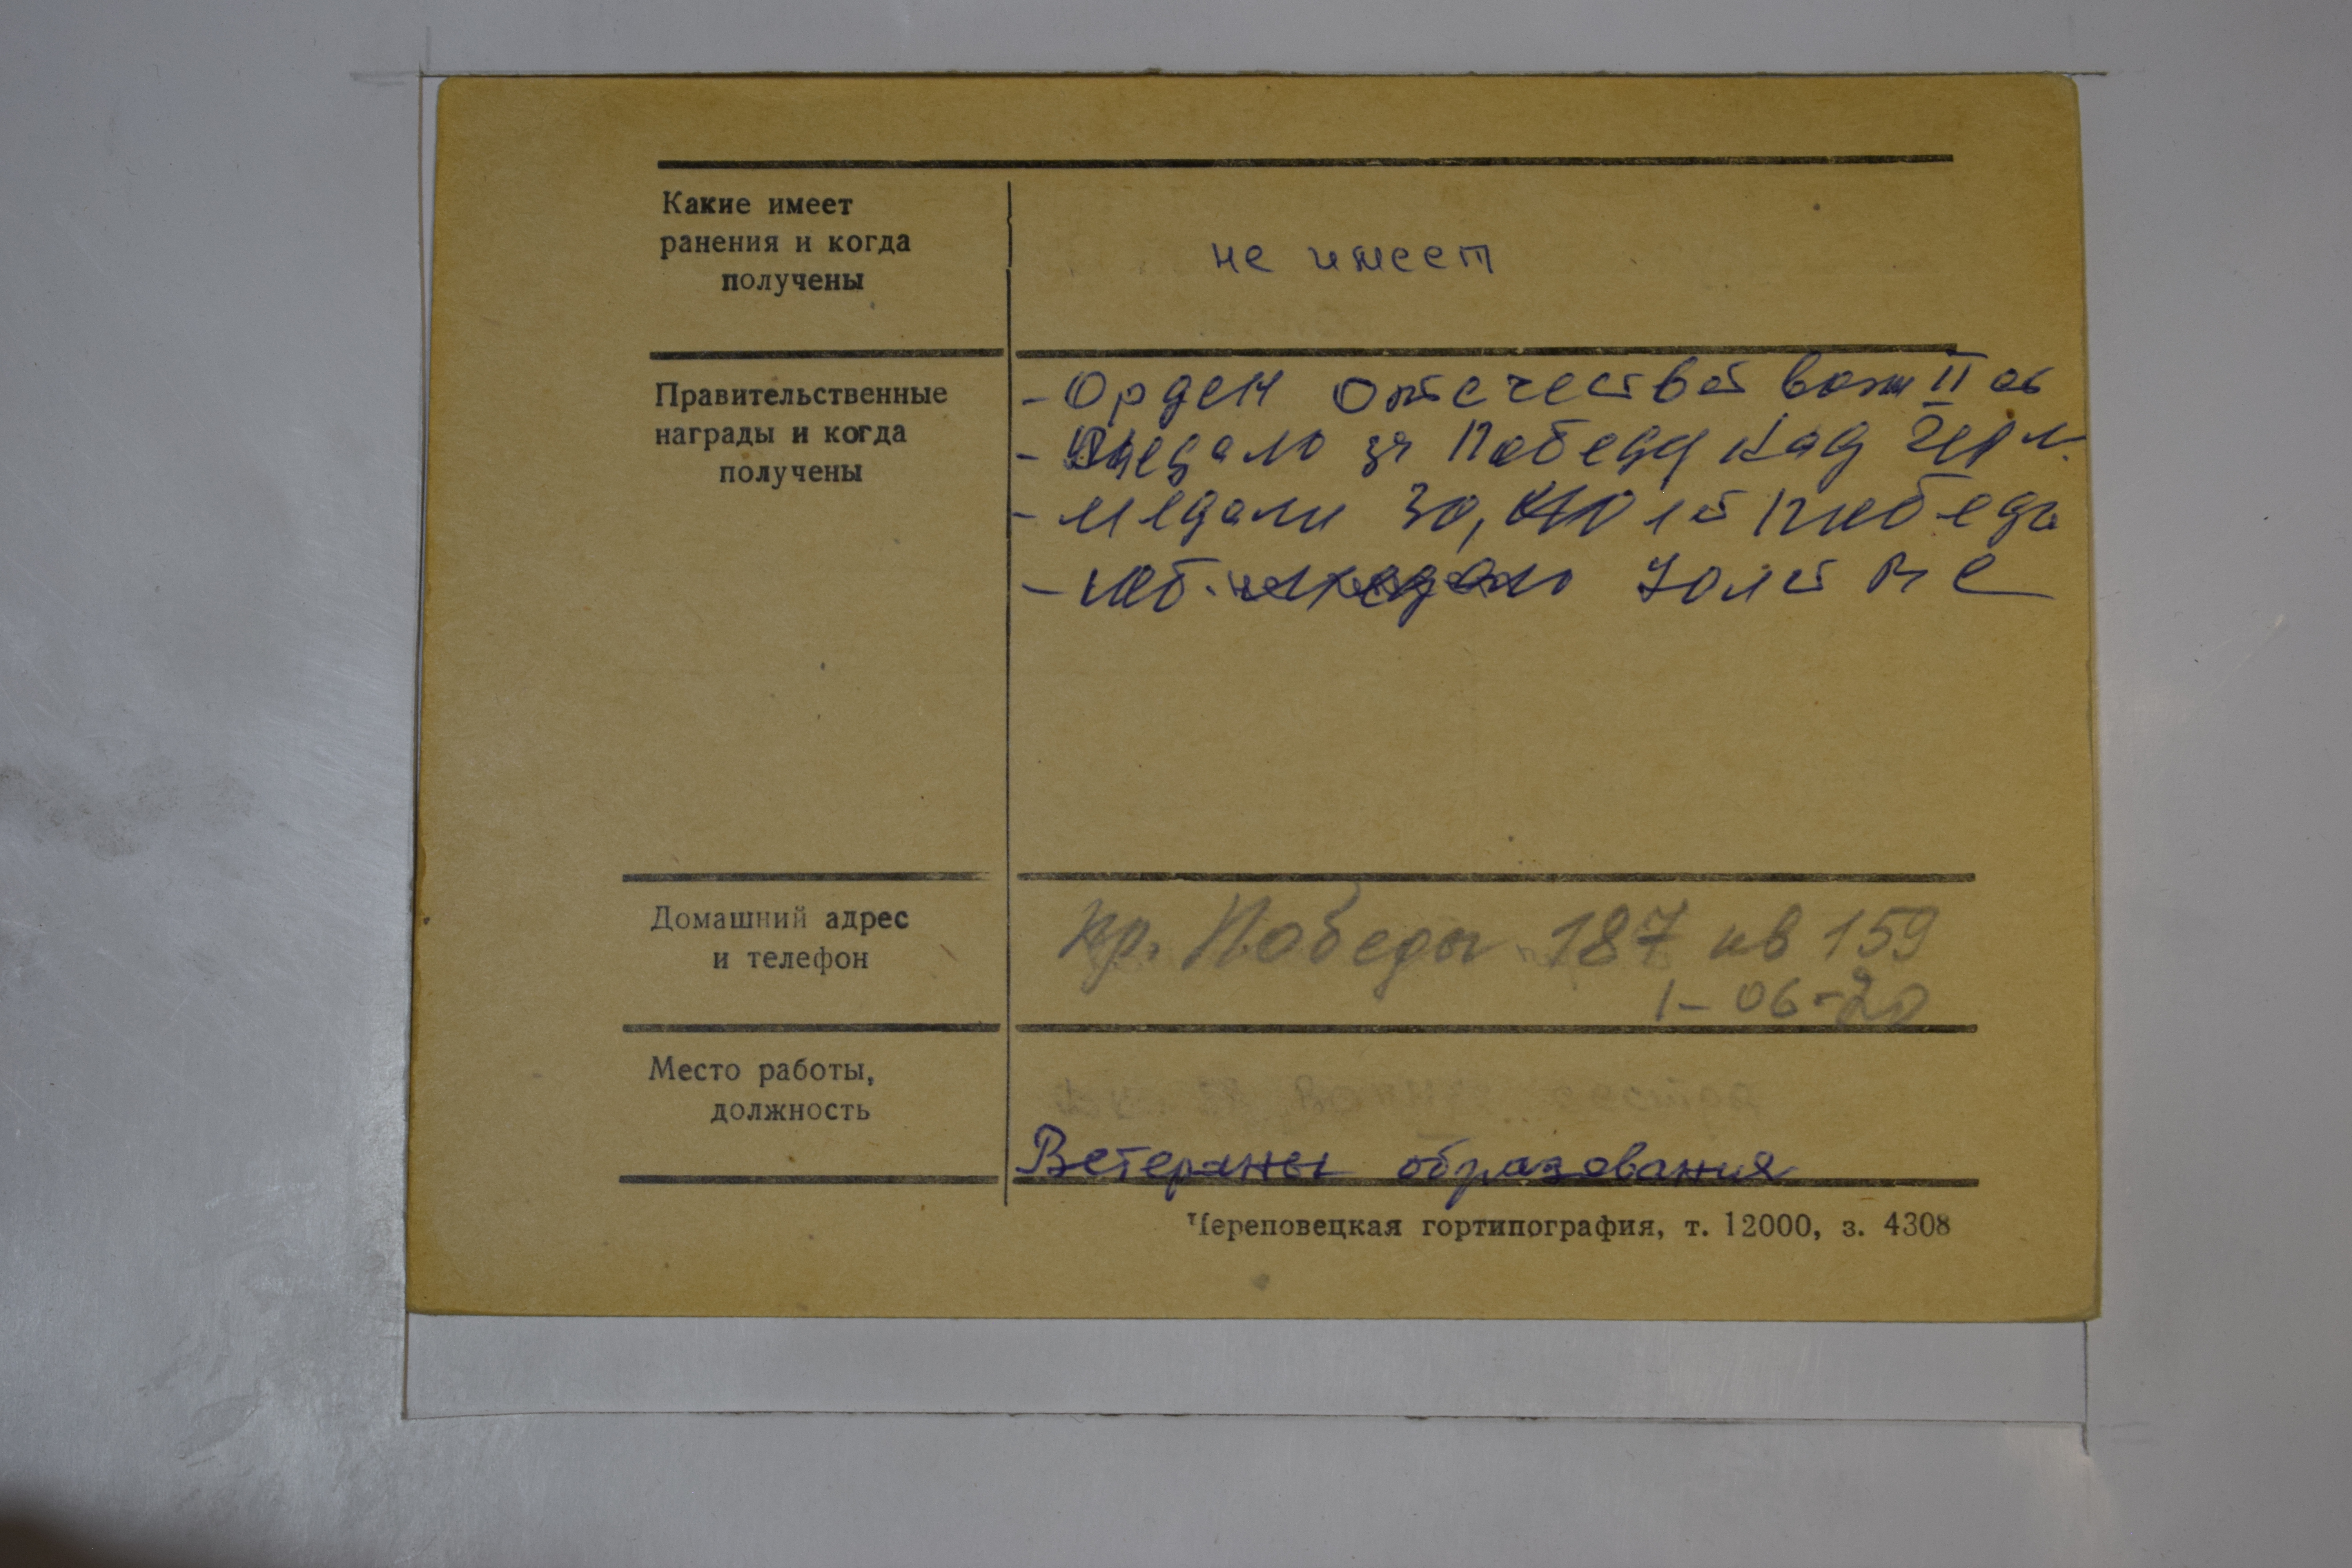 Какие имеет
ранения и когда
получены
не имеет
Правительственные
награды и когда
получены
- Орден Отечествен войн II
- Медаль за Победу над Герм.
- Медали 30, 40 лет победы
- Юб. медаль
Домашний адрес
и телефон
пр. Победы 187 кв 159
1-06-20
Место работы,
должность
сестра
Ветераны образования
Череповецкая гортипография, т. 12000, з. 4308